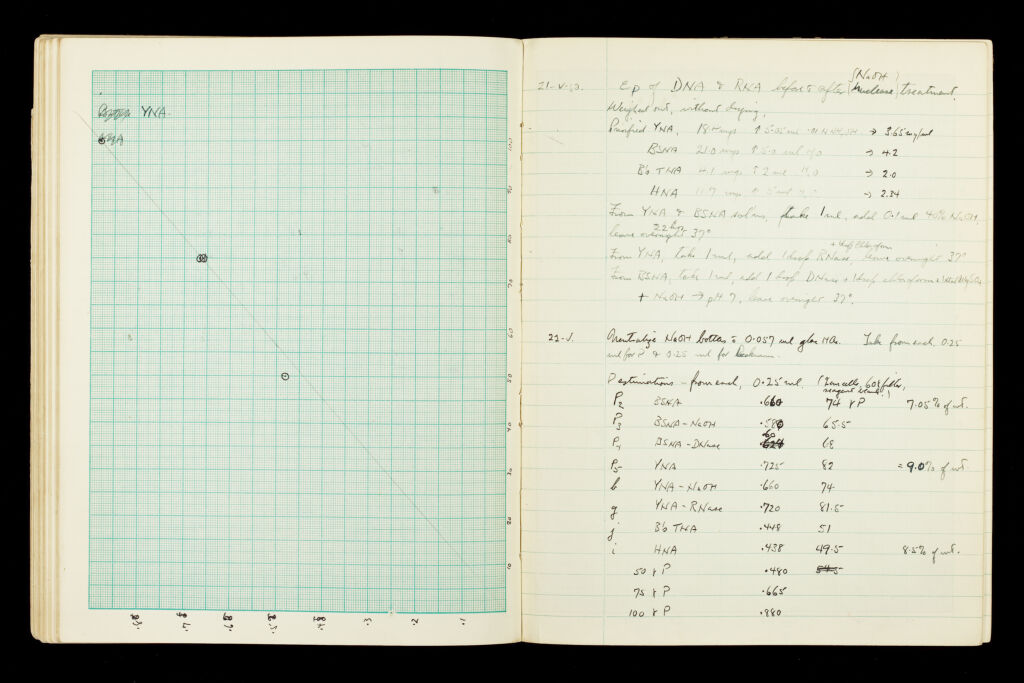 YNA.
100
90
80
70
60
50
40
20
10
.3
.2
.1
21-V-50. Ep of DNA & RNA before & after (NaOH / nuclease) treatment.
Weighed out, without drying,
Purified YNA, 18.4 mgs ↑ 5.05 ml → 3.65 mg/ml
BSNA 21.0 mgs ↑ 5.0 ml H2O → 4.2
B'b TNA 4.1 mgs ↑ 2 ml H2O → 2.0
HNA 11.7 mgs ↑ 5 ml → 2.34
From YNA & BSNA sol'ns, take 1 ml, add 0.1 ml 40% NaOH,
leave overnight 22 hrs 37°
+ 1 drop chloroform
From YNA, take 1 ml, add 1 drop RNase, leave overnight 37°
From BSNA, take 1 ml, add 1 drop DNase + 1 drop chloroform +
+ NaOH → pH 7, leave overnight 37°.
22-V. Neutralize NaOH bottles c 0.057 ml glac HAc. Take from each 0.25
ml for P & 0.25 ml for
Pestimations - from each, 0.25 ml, (1 cm cells, 608 filter,
reagent blank!)
P2 BSNA .660 74 γ P 7.05% of wt.
P3 BSNA-NaOH .580 65.5
P4 BSNA-DNase 60 68
P5 YNA .725 82 = 9.0% of wt
b YNA-NaOH .660 74
g YNA-RNase .720 81.5
j B'b TNA .448 51
i HNA .438 49.5 8.5% of wt.
50 γ P .480
75 γ P .665
100 γ P .880